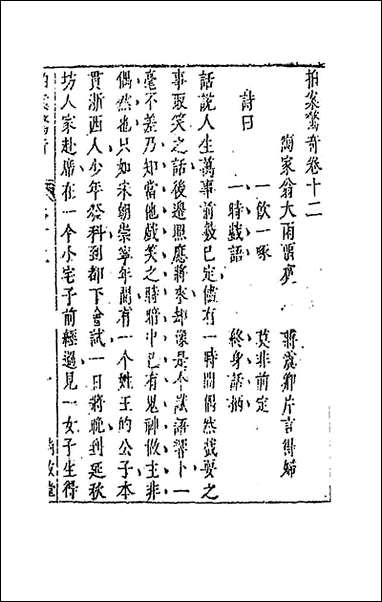 拍案驚奇卷十二
陶家翁大雨留賓　蔣震卿片言得婦
詩曰
一飲一啄　莫非前定
一時戲語　終身話柄
話說人生萬事前數已定儘有一時間偶然戲耍之
事取笑之話後邊照應將來却像是个讖語響卜一
毫不差乃知當他戲笑之時暗中已有鬼神做主非
偶然也只如宋朝崇寧年間有一个姓王的公子本
貫浙西人少年發科到都下會試一日將晚到延秋
坊人家赴席在一个小宅子前經過見一女子生得
拍案驚奇
尚友堂